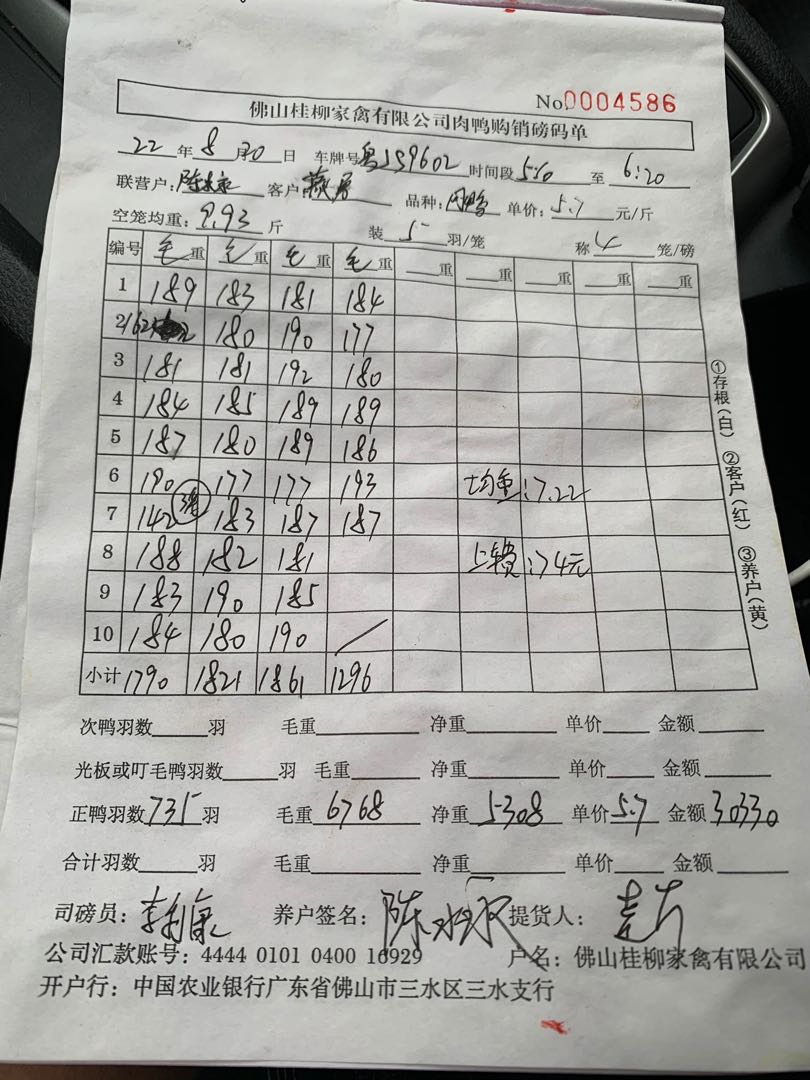 No.0004586
佛山桂柳家禽有限公司肉鸭购销磅码单
22年8月30日 车牌号粤JS9602 时间段5:10至6:20
联营户:陈永权 客户 品种:肉鸭 单价:5.7元/斤
空笼均重:9.93斤 装5羽/笼 称4笼/磅
编号 毛重 毛重 毛重 毛重 重 重 重 重 重
1 189 183 181 184
2 162 180 190 177
3 181 181 192 180
4 184 185 189 189
5 187 180 189 186
6 190 177 177 193 均重:7.22
7 142 3笼 183 187 187
8 188 182 181 上车费:74元
9 183 190 185
10 184 180 190 /
小计 1790 1821 1861 1296
①存根(白) ②客户(红) ③养户(黄)
次鸭羽数 羽 毛重 净重 单价 金额
光板或叮毛鸭羽数 羽 毛重 净重 单价 金额
正鸭羽数735羽 毛重6768 净重5308 单价5.7 金额30330
合计羽数 羽 毛重 净重 单价 金额
司磅员:李利康 养户签名:陈永权 提货人:
公司汇款账号:4444 0101 0400 16929 户名:佛山桂柳家禽有限公司
开户行:中国农业银行广东省佛山市三水区三水支行